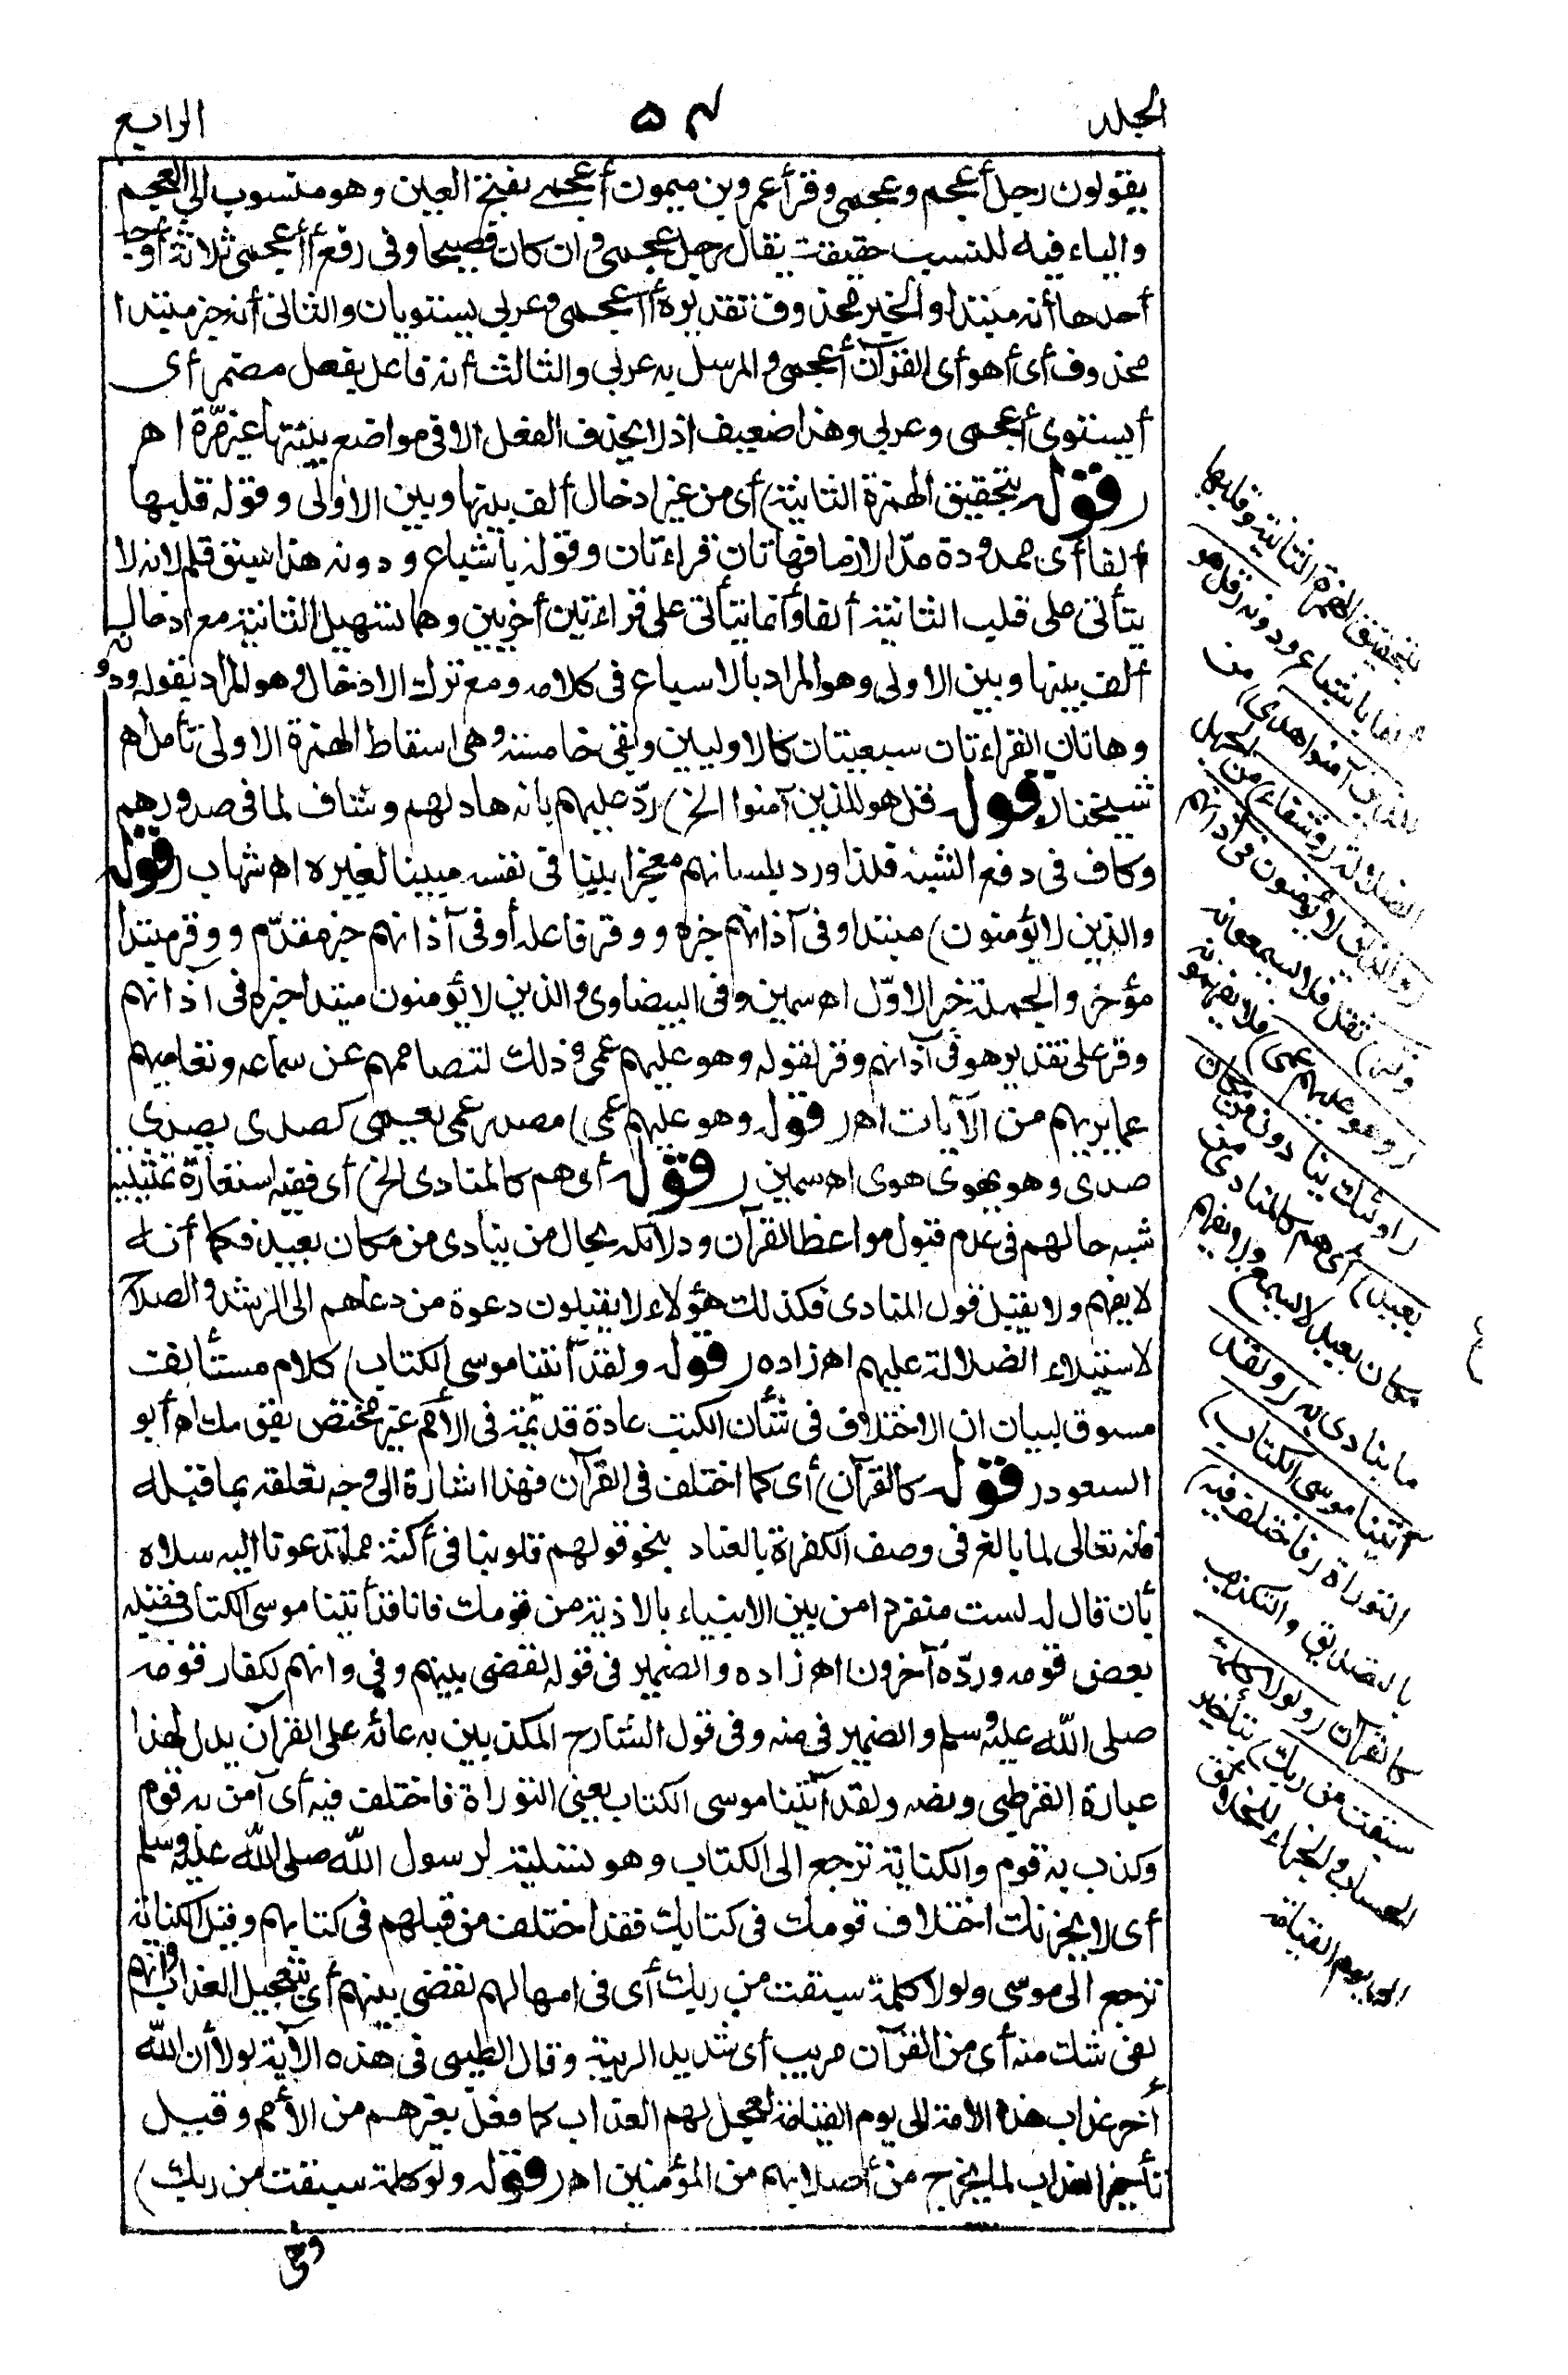 الجلد
٥٤
الرابع
يقولون رجل أعجم وعجمى وقرأ عمرو بن ميمون أعجمى بفتح العين وهو منسوب الى العجم
والياء فيه للنسب حقيقة يقال رجل عجمى وان كان فصيحا وفى رفع أأعجمى ثلاثة أوجه
أحدها أنه مبتدا والخبر محذوف تقديره أأعجمى وعربى يستويان والثانى أنه خبر مبتدا
محذوف أى أهو أى القرآن أعجمى والمرسل به عربى والثالث أنه فاعل بفعل مضمر أى
أيستوى أعجمى وعربى وهذا ضعيف اذ لا يحذف الفعل الا فى مواضع بينتها غير مرة اه
(قوله بتحقيق الهمزة الثانية) أى من غير ادخال ألف بينها وبين الاولى وقوله قلبها
ألفا أى ممدودة مدّا لازما فهاتان قراءتان وقوله باشباع ودونه هذا سبق قلم لانه لا
يتأتى على قلب الثانية ألفا وانما يتأتى على قراءتين أخريين وهما تسهيل الثانية مع ادخال
ألف بينها وبين الاولى وهو المراد بالاشباع فى كلامه ومع ترك الادخال وهو المراد بقوله ودونه
وهاتان القراءتان سبعيتان كالاوليين وبقى خامسة وهى اسقاط الهمزة الاولى تأمل اه
شيخنا (قوله قل هو للذين آمنوا الخ) ردّ عليهم بانه هاد لهم وشاف لما فى صدورهم
وكاف فى دفع الشبه فلذا ورد بلسانهم معجزا بينا فى نفسه مبينا لغيره اه شهاب (قوله
والذين لا يؤمنون) مبتدا وفى آذانهم خبره ووقر فاعله أو فى آذانهم خبر مقدّم ووقر مبتدا
مؤخر والجملة خبر الاوّل اه سمين وفى البيضاوى والذين لا يؤمنون مبتدا خبره فى آذانهم
وقر على تقدير هو فى آذانهم وقر لقوله وهو عليهم عمى وذلك لتصاممهم عن سماعه وتعاميهم
عما يريهم من الآيات اه (قوله وهو عليهم عمى) مصدر عمى يعمى كصدى يصدى
صدى وهوى يهوى هوى اه سمين (قوله أى هم كالمنادى الخ) أى ففيه استعارة تمثيلية
شبه حالهم فى عدم قبول مواعظ القرآن ودلائله بحال من ينادى من مكان بعيد فكما أنه
لا يفهم ولا يقبل قول المنادى فكذلك هؤلاء لا يقبلون دعوة من دعاهم الى الرشد والصلاح
لاستيلاء الضلالة عليهم اه زاده (قوله ولقد آتينا موسى الكتاب) كلام مستأنف
مسوق لبيان ان الاختلاف فى شأن الكتب عادة قديمة فى الأمم غير مختص بقومك اه أبو
السعود (قوله كالقرآن) أى كما اختلف فى القرآن فهذا اشارة الى وجه تعلقه بما قبله
فانه تعالى لما بالغ فى وصف الكفرة بالعناد بنحو قولهم قلوبنا فى أكنة مما تدعونا اليه سلاه
بأن قال له لست منفردا من بين الانبياء بالاذية من قومك فانا قد آتينا موسى الكتاب فقبله
بعض قومه وردّه آخرون اه زاده والضمير فى قوله لقضى بينهم وفى وانهم لكفار قومه
صلى الله عليه وسلم والضمير فى منه وفى قول الشارح المكذبين به عائد على القرآن يدل لهذا
عبارة القرطبى ونصه ولقد آتينا موسى الكتاب يعنى التوراة فاختلف فيه أى آمن به قوم
وكذب به قوم والكناية ترجع الى الكتاب وهو تسلية لرسول الله صلى الله عليه وسلم
أى لا يحزنك اختلاف قومك فى كتابك فقد اختلف من قبلهم فى كتابهم وقيل الكناية
ترجع الى موسى ولولا كلمة سبقت من ربك أى فى امهالهم لقضى بينهم أى بتعجيل العذاب وانهم
لفى شك منه أى من القرآن مريب أى شديد الريبة وقال الطيبى فى هذه الآية لولا أن الله
أخر عذاب هذه الامة الى يوم القيامة لعجل لهم العذاب كما فعل بغيرهم من الأمم وقيل
تأخير العذاب لما يخرج من أصلابهم من المؤمنين اه (قوله ولو كلمة سبقت من ربك)
بتحقيق الهمزة الثانية وقلبها
ألفا باشباع ودونه (قل هو
للذين آمنوا هدى) من
الضلالة (وشفاء) من الجهل
(والذين لا يؤمنون فى آذانهم
وقر) ثقل فلا يسمعونه
(وهو عليهم عمى) فلا يفهمونه
(أولئك ينادون من مكان
بعيد) أى هم كالمنادى من
مكان بعيد لا يسمع ولا يفهم
ما ينادى به (ولقد
آتينا موسى الكتاب)
التوراة (فاختلف فيه)
بالتصديق والتكذيب
كالقرآن (ولولا كلمة
سبقت من ربك) بتأخير
الحساب والجزاء للخلائق
الى يوم القيامة